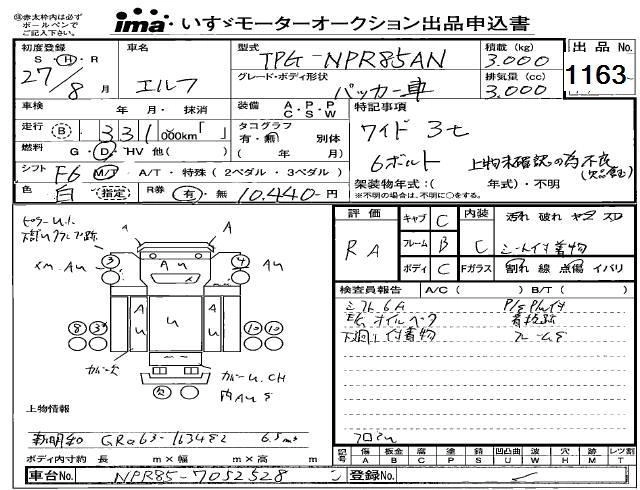 ※赤太枠内は必ずボールペンでご記入下さい。
ima・いすゞモーターオークション出品申込書
初度登録 S・H・R 27/8 月
車名 エルフ
型式 TPG-NPR85AN
グレード・ボディ形状 パッカー車
積載 (kg) 3.000
排気量 (cc) 3.000
出品 No. 1163
車検 年 月・抹消
装備 A・P・P C・S・W
特記事項
走行 B 331 000km「 」
タコグラフ 有・無 別体 ( 年 月)
ワイド 3t
燃料 G・D・HV 他( )
6ボルト 上物未確認の為不良
シフト F6 M/T A/T・特殊 (2ペダル・3ペダル)
架装物年式:( 年式)・不明
※不明の場合は、不明に○をする。
色 白 指定
R券 有・無 10.440-円
評価 RA
キャブ C
フレーム B
ボディ C
内装 C
汚れ 破れ ヤケ スレ
シート付着物
Fガラス 割れ 線 点傷 イバリ
検査員報告 A/C ( ) B/T ( )
シフト6A
E/G オイルベタ 看板跡
下廻り付着物 フレームS
A
A A
3 4
AU AU
A U A
8 3 10 10
カバー欠
カバーU.CH
内AUS
欠
上物情報
新明和 GRa63-163482 6.5m3
ボディ内寸約 長 m×幅 m×高 m
記号 傷 A 板金 B 腐 C 塗 P 錆 S 凹凸曲 U 波 W 穴 H 跡 M レツ割 T
車台No. NPR85-7052528
登録No.